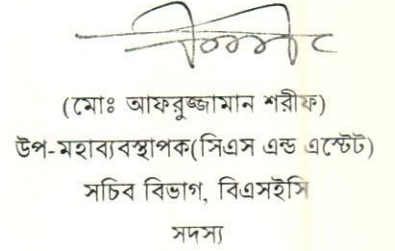 (মোঃ আফরুজ্জামান শরীফ)
উপ-মহাব্যবস্থাপক(সিএস এন্ড এস্টেট)
সচিব বিভাগ, বিএসইসি
সদস্য